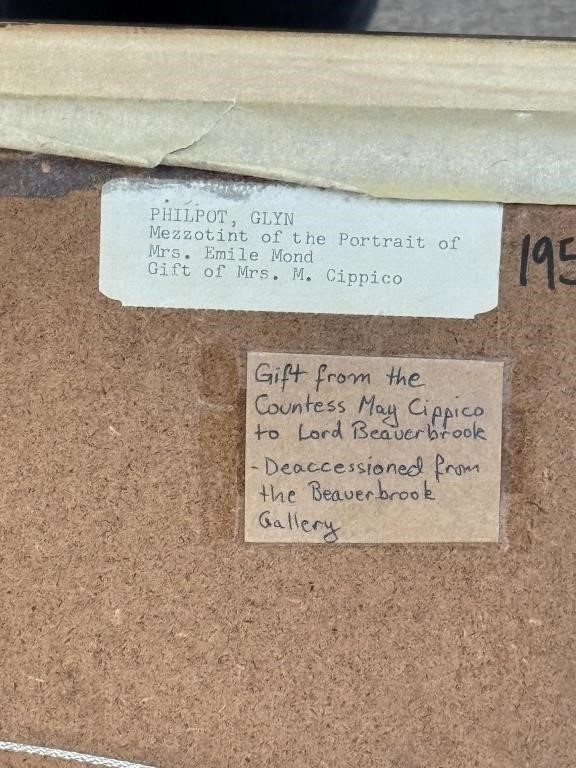 PHILPOT, GLYN
Mezzotint of the Portrait of
Mrs. Emile Mond
Gift of Mrs. M. Cippico
195
Gift from the
Countess May Cippico
to Lord Beaverbrook
- Deaccessioned from
the Beaverbrook
Gallery